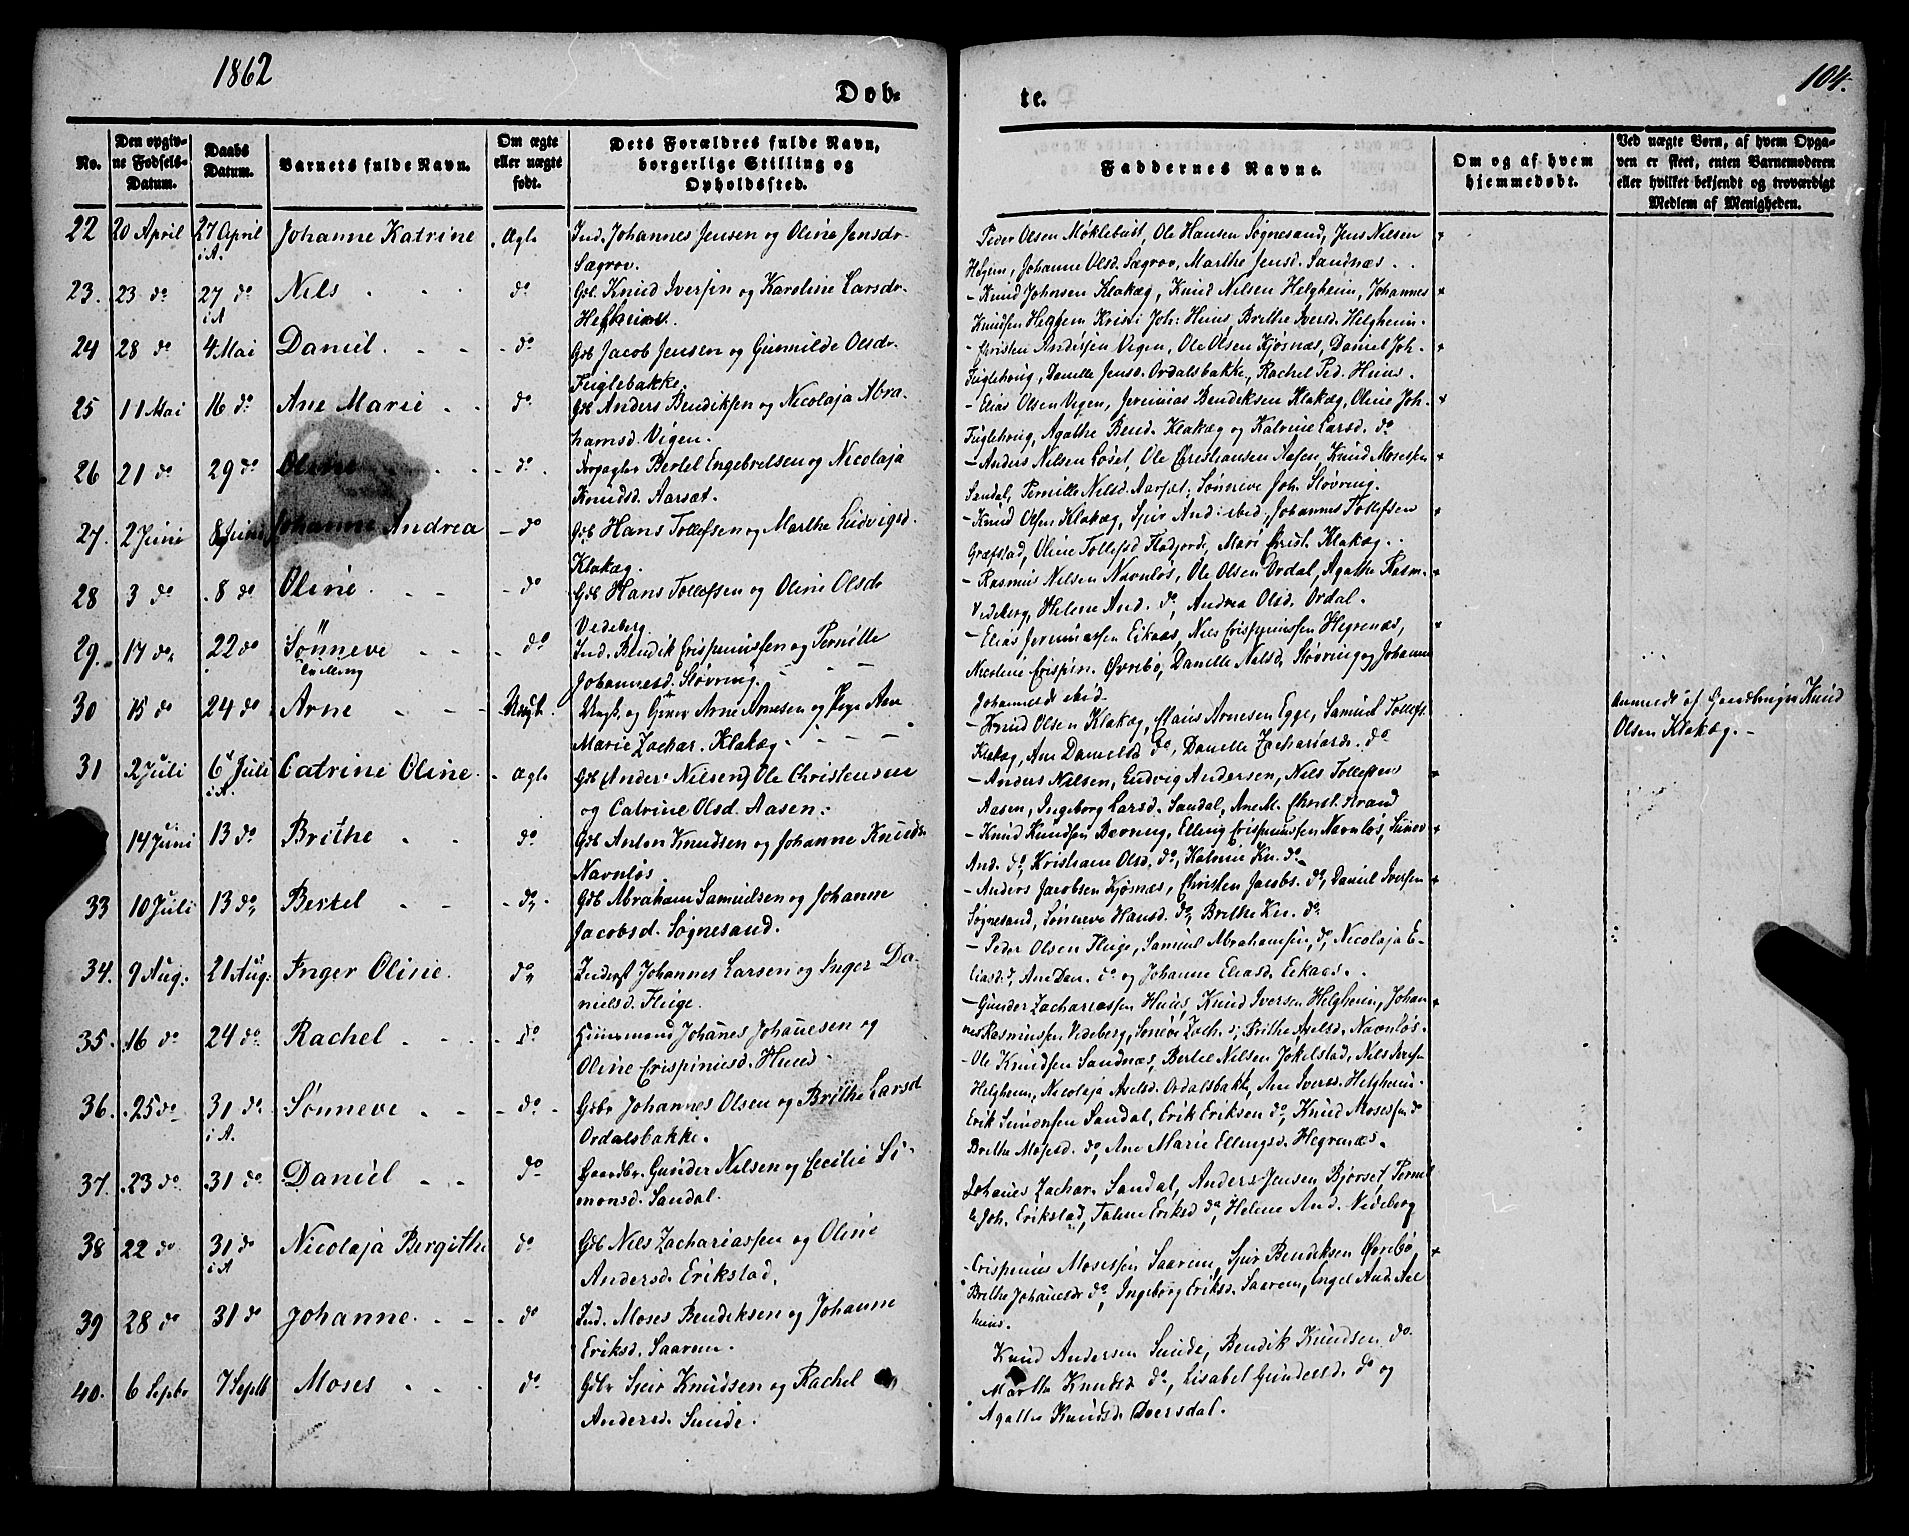 1862
Døb-
te.
104.
No.
Den opgivne Fødsels-Datum.
Daabs Datum.
Barnets fulde Navn.
Om ægte eller uægte født.
Dets Forældres fulde Navn, borgerlige Stilling og Opholdssted.
Faddernes Navne.
Om og af hvem hjemmedøbt.
Ved uægte Børn, af hvem Opgaven er skeet, enten Barnemoderen eller hvilket bekjendt og troværdigt Medlem af Menigheden.
22 20 April 27 April Johanne Katrine Ægte Ind. Johannes Jensen og Oline Jensdr Peder Olsen Møklebust, Ole Hansen Søgnesand, Jens Nilsen
i A. Sægrov. Helgem, Johanne Olsd. Sægrov, Marthe Jensd. Sandnæs.
23. 23 do 27 do Nils do Gb. Knud Iversen og Karoline Larsdr. Knud Johnsen Klakæg, Knud Nilsen Helgheim, Johannes
i A Helgheim. Knudsen Helghem Kristi Joh: Huus, Brithe Ivers. Helgheim
24 28 do 4 Mai Daniel do Gdb Jacob Jensen og Gunnilde Olsdr. Christen Andersen Vigen, Ole Olsen Kjøsnæs, Daniel Joh.
Fuglebakke. Fuglehoug, Danelle Jensd. Ordalsbakke, Rachel Ped. Huus.
25 11 Mai 16 do Ane Marie do Gdb Anders Bendiksen og Nicolaja Abra- Elias Olsen Vigen, Jeremias Bendiksen Klakæg, Oline Joh
hamsd. Vigen. Fuglehoug, Agathe Bend. Klakæg og Katrine Larsd. do
26 21 do 29 do Oline do Forpagter Bertel Engebretsen og Nicolaja Anders Nilsen Løset, Ole Christiansen Aasen, Knud Mosessen
Knudsd. Aarsæt. Sandal, Pernille Nilsd. Aarsæt, Sønneve Joh. Støvring.
27. 2 Juni 8 Juni Johanne Andrea do Gdb Hans Tollefsen og Marthe Ludvigsd. Knud Olsen Klakæg, Sjur And: ibid, Johannes Tollefsen
Klakæg. Græfstad, Oline Tollefsd Fladjorde, Mari Christ. Klakæg.
28 3 do 8 do Oline do Gdb Hans Tollefsen og Oline Olsdr Rasmus Nilsen Navnløs, Ole Olsen Ordal, Agathe Rasm.
Vedeberg Vedeberg, Helene And. do, Andrea Olsd. Ordal.
29. 17 do 22 do Sønneve do Ind. Bendik Crispinussen og Pernille Elias Jeremiassen Eikaas, Nils Crispinussen Hegrenæs,
Tvilling Johannesd. Støvring. Nicoline Crispin. Øvrebø, Danelle Nilsd, Støvring og Johanne
Johannesd ibid.
30 15 do 24 do Arne Uægt. Ungk. og Gaver Arne Arnesen og Pige Ane Knud Olsen Klakæg, Claus Arnesen Egge, Samuel Tollefs.
Marie Zachar. Klakæg. Klakæg, Ane Danielsd do, Danelle Zachariasdr. do
Anmeldt af Gaardbruger Knud
Olsen Klakæg.
31 2 Juli 6 Juli Catrine Oline. Ægte Gdb (Anders Nilsen) Ole Christensen Anders Nilsen, Ludvig Andersen, Nils Tollefsen
i A. og Catrine Olsd. Aasen. Aasen, Ingeborg Larsd. Sandal, Ane M. Christ. Strand
14 Juni 13 do Brithe do Gdb Anton Knudsen og Johanne Knuds. Knud Knudsen Berning, Elling Crispinussen Navnløs,
Navnløs. And. do, Kristiane Olsd. do, Katrine Kn. do
33 10 Juli 13 do Bertel do Gdb Abraham Samuelsen og Johanne Anders Jacobsen Kjøsnæs, Christen Jacobs. do, Daniel Iversen
Jacobsd. Søgnesand. Søgnesand, Sønneve Hansd. do, Brithe Kn. do
34. 9 Aug: 21 Aug: Inger Oline. do Inderst Johannes Larsen og Inger Da- Peder Olsen Fluge, Samuel Abrahamsen, do, Nicolaja E-
nielsd. Fluge. liasd. do, Ane Dan. do og Johanne Eliasd. Eikaas.
35. 16 do 24 do Rachel do Huusmand Johanes Johanesen og Gunder Zachariassen Huus, Knud Iversen Helgheim, Johan
Oline Crispinusd. Huus. nes Rasmussen Vedeberg, Sønneve Zach. do, Brithe Axelsd. Navnløs.
36. 25 do 31 do Sønneve do Gdbr Johannes Olsen og Brithe Larsd Ole Knudsen Sandnæs, Bertel Nilsen Jokelstad, Nils
i A. Ordalsbakke. Helgheim, Nicolaja Axelsd. Ordalsbakke, Ane Iversd. Helgheim.
37. 23 do 31 do Daniel do Gaardbr. Gunder Nilsen og Cecilie Si- Erik Simonsen Sandal, Erik Eriksen do, Knud Mosessen do
monsd. Sandal. Brithe Mosesd. do, Ane Marie Ellingsd. Hegrenæs.
38 22 do 31 do Nicolaja Bergithe do Gdb Nils Zachariassen og Oline Johanes Zachar. Sandal, Anders Jensen Bjørset, Pernil
i A Andersd. Erikstad. le Joh. Erikstad, Taline Eriksd do, Helene And. Vedeberg
39 28 do 31 do Johanne. do Ind. Moses Bendiksen og Johanne Crispinus Mosessen Saarem, Sjur Bendiksen Øvrebø,
Eriksd. Saarem. Brithe Johanesdr do, Ingeborg Eriksd. Saarem, Engel And. Aal
huus.
40. 6 Septbr 7 Septb Moses do Gdbr Sjur Knudsen og Rachel Knud Andersen Sunde, Bendik Knudsen do.
Andersd. Sunde. Marthe Knudsd do, Lisabet Gundersd. do og
Agathe Knudsd. Dversdal.